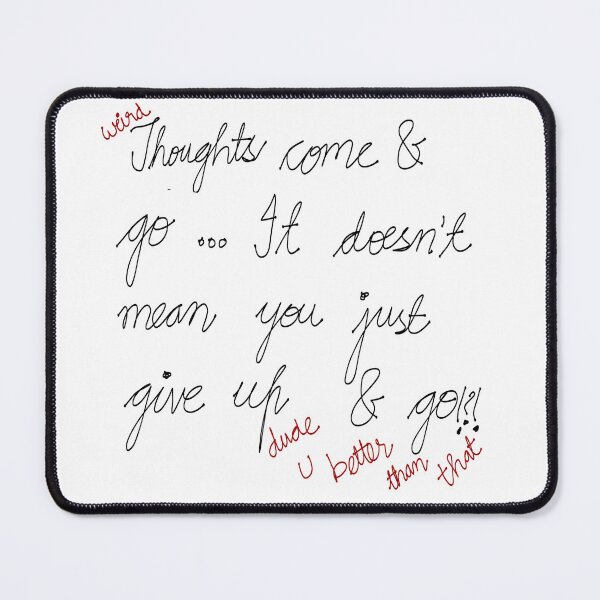 weird
Thoughts come &
go ... It doesn't
mean you just
give up & go!?!
dude
u better
than that